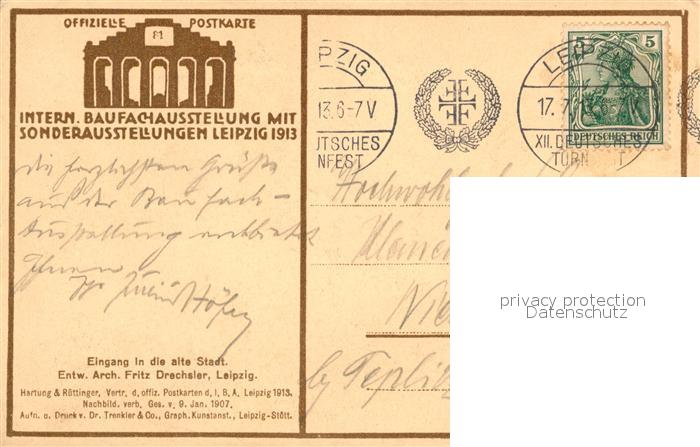 OFFIZIELLE POSTKARTE
81
INTERN. BAUFACHAUSSTELLUNG MIT
SONDERAUSSTELLUNGEN LEIPZIG 1913
die herzlichsten Grüße
aus der Baufach-
Ausstellung entbietet
Ihnen
Eingang in die alte Stadt.
Entw. Arch. Fritz Drechsler, Leipzig.
Hartung & Rüttinger, Vertr. d. offiz. Postkarten d. I. B. A. Leipzig 1913.
Nachbild. verb. Ges. v. 9. Jan. 1907.
Aufn. u. Druck v. Dr. Trenkler & Co., Graph. Kunstanst., Leipzig-Stött.
IPZIG
13.6-7V
UTSCHES
NFEST
LEIPZIG
17.7
V
XII. DEUTSCHES
TURN T
5 5
DEUTSCHES REICH
Nie
by Teplitz
privacy protection
Datenschutz